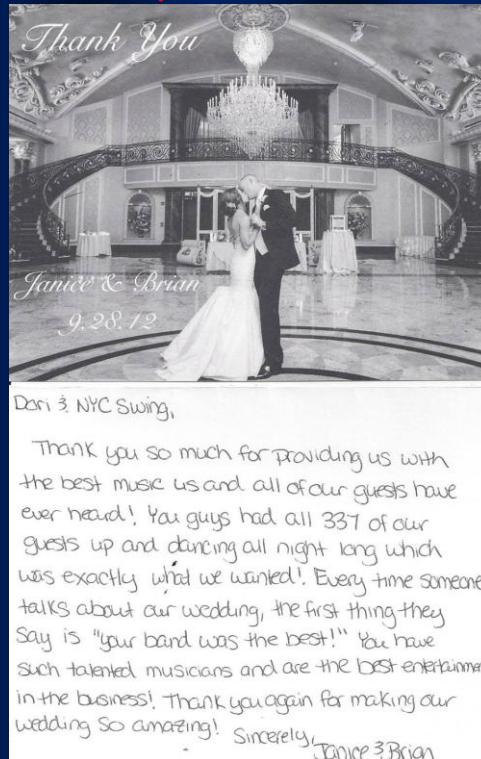 Thank You
Janice & Brian
9.28.12
Dori & NYC Swing,
Thank you so much for providing us with
the best music us and all of our guests have
ever heard! You guys had all 337 of our
guests up and dancing all night long which
was exactly what we wanted! Every time someone
talks about our wedding, the first thing they
say is "your band was the best!" You have
such talented musicians and are the best entertainmen
in the business! Thank you again for making our
wedding so amazing! Sincerely,
Janice & Brian